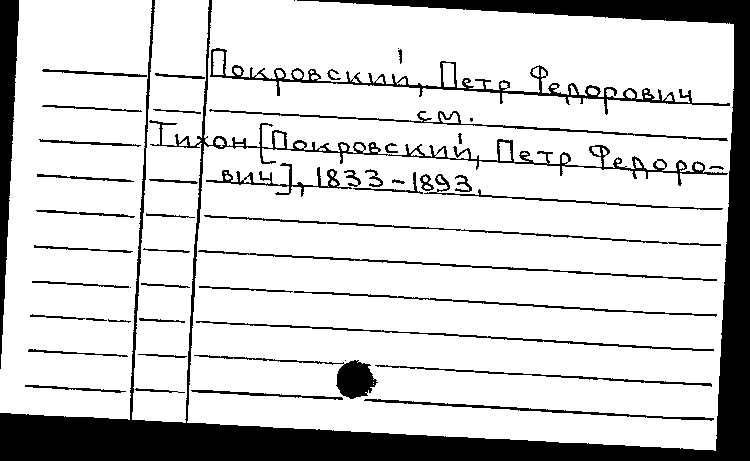 Покровский, Петр Федорович
см.
Тихон [Покровский, Петр Федоро-
вич], 1833-1893.